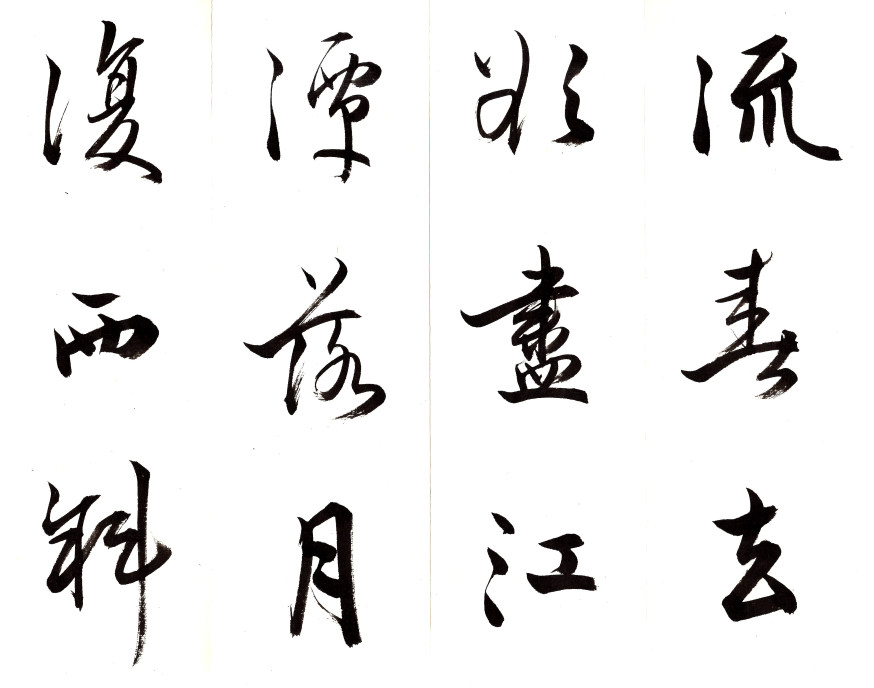 流春去
欲盡江
潭落月
復西斜